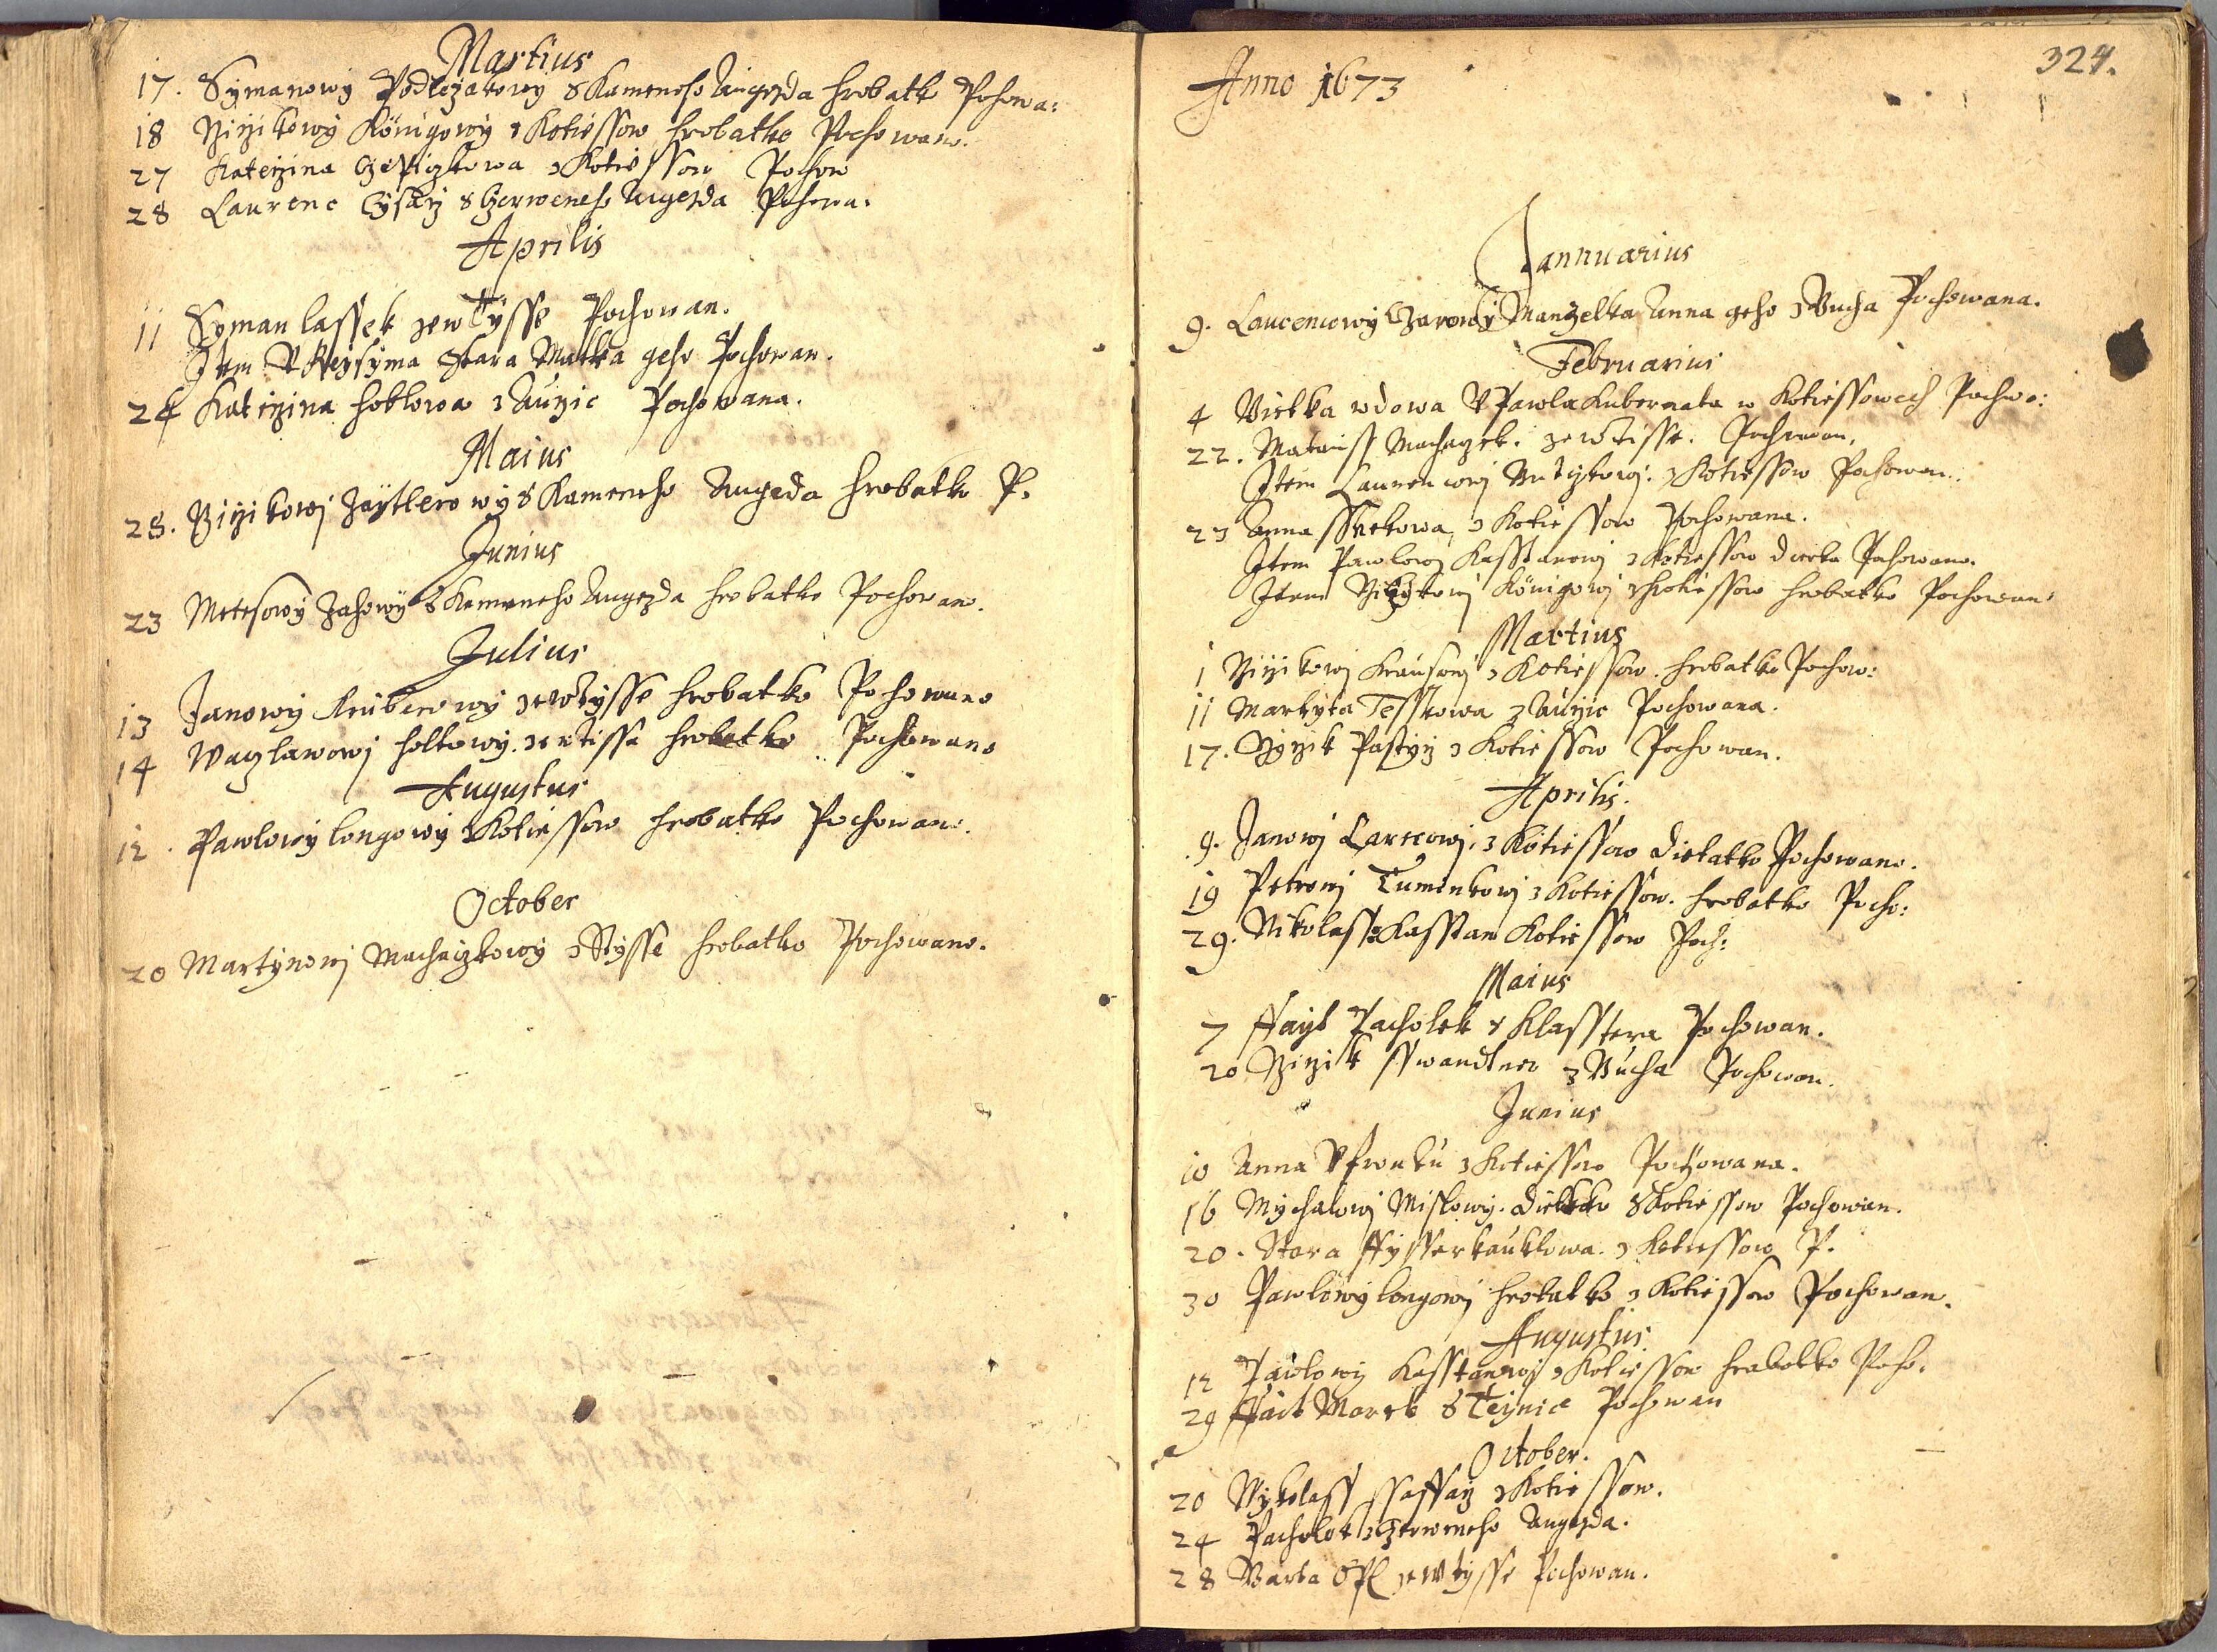 Martius
17. Symanowy Podlezakowy z Kameneho Augezda hrobatko Pohowa:
18 Girzikowy Königowy z Kotiessow hrobatko Pochowano.
27 Katerzina z Kotiessow Pochow
28 Laurenc Cysarz z Czerweneho Augezda Pohowa:
Aprilis
11 Syman lassek zewtysse Pochowan.
Item V Stara Matka geho Pochowan.
24 Katerzina hoblowa z Aužic Pochowana.
Maius
28. Girzikowj Zaytlerowy z Kameneho Augezda hrobatko P.
Junius
23 Zahowy z Kameneho Augezda hrobatko Pochowano.
Julius
13 Janowy Kruberowy zewtysse hrobatko Pochowano
14 Waczlawowj holkowy. zewtisse hrobatko Pochowano
Augustus
12. Pawlowy longowy z Kotiessow hrobatko Pochowano.
October
20 Martynowj Machaczkowy z Stysse hrobatko Pochowano.
324.
Anno 1673
Jannuarius
9. Laurencowy Manzelka Anna geho z Bucha Pochowana.
Februarius
4 wdowa V Pawla Kubernata w Kotiessowech Pochwo:
22. Matauss Machaczek. zewtisse. Pochowan.
Item Laurencowj z Kotiessow Pochowan.
23 Anna z Kotiessow Pochowana.
Item Pawlowj Kasstanowj z Kotiessow Pochowano.
Item Girzikowj Königowj z Kotiessow hrobatko Pochowan:
Martius
1 Girzikowj Krausowj z Kotiessow. hrobatko Pochow:
11 Markyta Tesskowa z Aužic Pochowana.
17. Girzik Pastyrz z Kotiessow Pochowan.
Aprilis.
9. Janowj z Kotiessow Dietatko Pochowano.
19 Petrowj Tumenkowj z Kotiessow. hrobatko Pocho:
29. Nikolass Kasstan Kotiessow Poch:
Maius
7 ffayt Pacholek z Klasstera Pochowan.
20 Girzik sswandtner z Bucha Pochowan.
Junius
10 Anna V z Kotiessow Pochowana.
16 Mychalowj Mislowy. z Kotiessow Pochowan.
20. Stara z Kotiessow P.
30 Pawlowy longowj hrobatko z Kotiessow Pochowan.
Augustus
12 Pawlowy Kasstanowj z Kotiessow hrobatko Poho:
29 ffait Marek z Teynice Pochowan
October.
20 Mykolass ssaffarz z Kotiessow.
24 Pacholek z Czerweneho Augezda.
28 Barta Öpl zewtysse Pochowan.